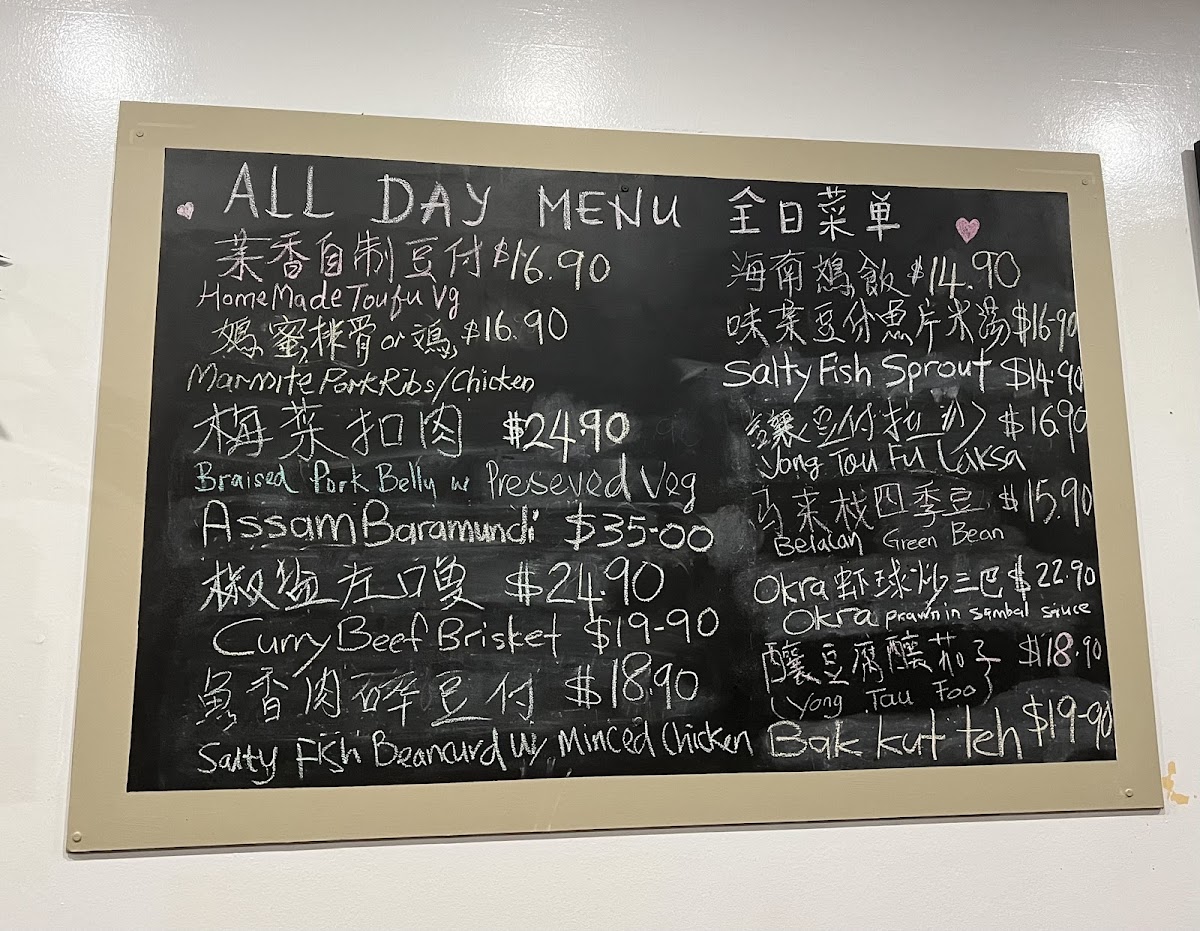 ALL DAY MENU 全日菜单
菜香自制豆付 $16.90
HomeMade Toufu Vg
蜜排骨or鸡 $16.90
Marmite Pork Ribs/Chicken
梅菜扣肉 $24.90
Braised Pork Belly w Preseved Veg
Assam Baramundi $35-00
椒盐 $24.90
Curry Beef Brisket $19-90
魚香肉碎豆付 $18.90
Salty Fish Beancurd w/ Minced Chicken
海南鸡飯 $14.90
味菜豆付魚片米汤 $16-90
Salty Fish Sprout $14.90
釀(豆付拉沙) $16.90
Yong Tau Fu Laksa
马来栈四季豆 $15.90
Belacan Green Bean
Okra 虾球炒三巴 $22.90
Okra prawn in sambal sauce
釀豆腐釀茄子 $18.90
(Yong Tau Foo)
Bak kut teh $19-90